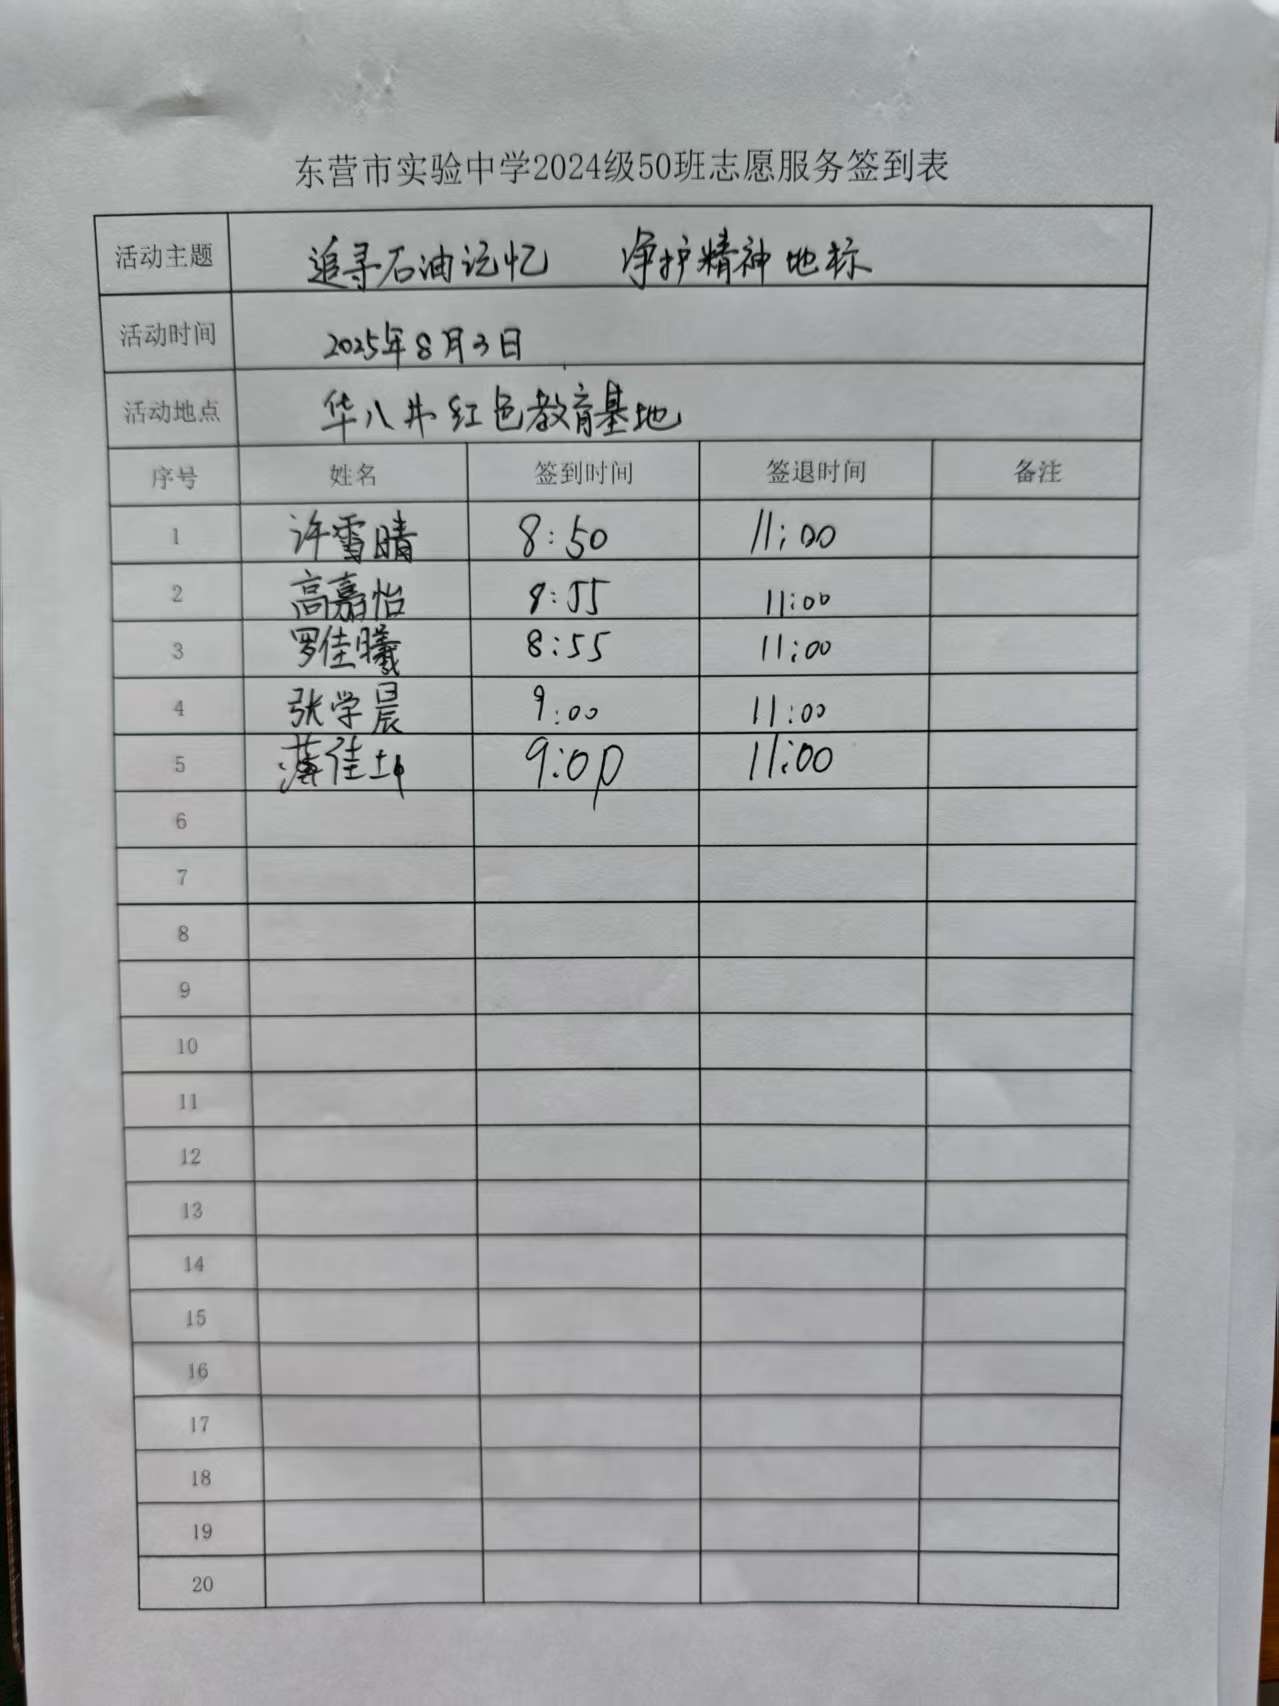 东营市实验中学2024级50班志愿服务签到表
活动主题 追寻石油记忆 净护精神地标
活动时间 2025年8月3日
活动地点 华八井红色教育基地
序号 姓名 签到时间 签退时间 备注
1 许雪晴 8:50 11:00
2 高嘉怡 8:55 11:00
3 罗佳曦 8:55 11:00
4 张学晨 9:00 11:00
5 薄佳坤 9:00 11:00
6
7
8
9
10
11
12
13
14
15
16
17
18
19
20